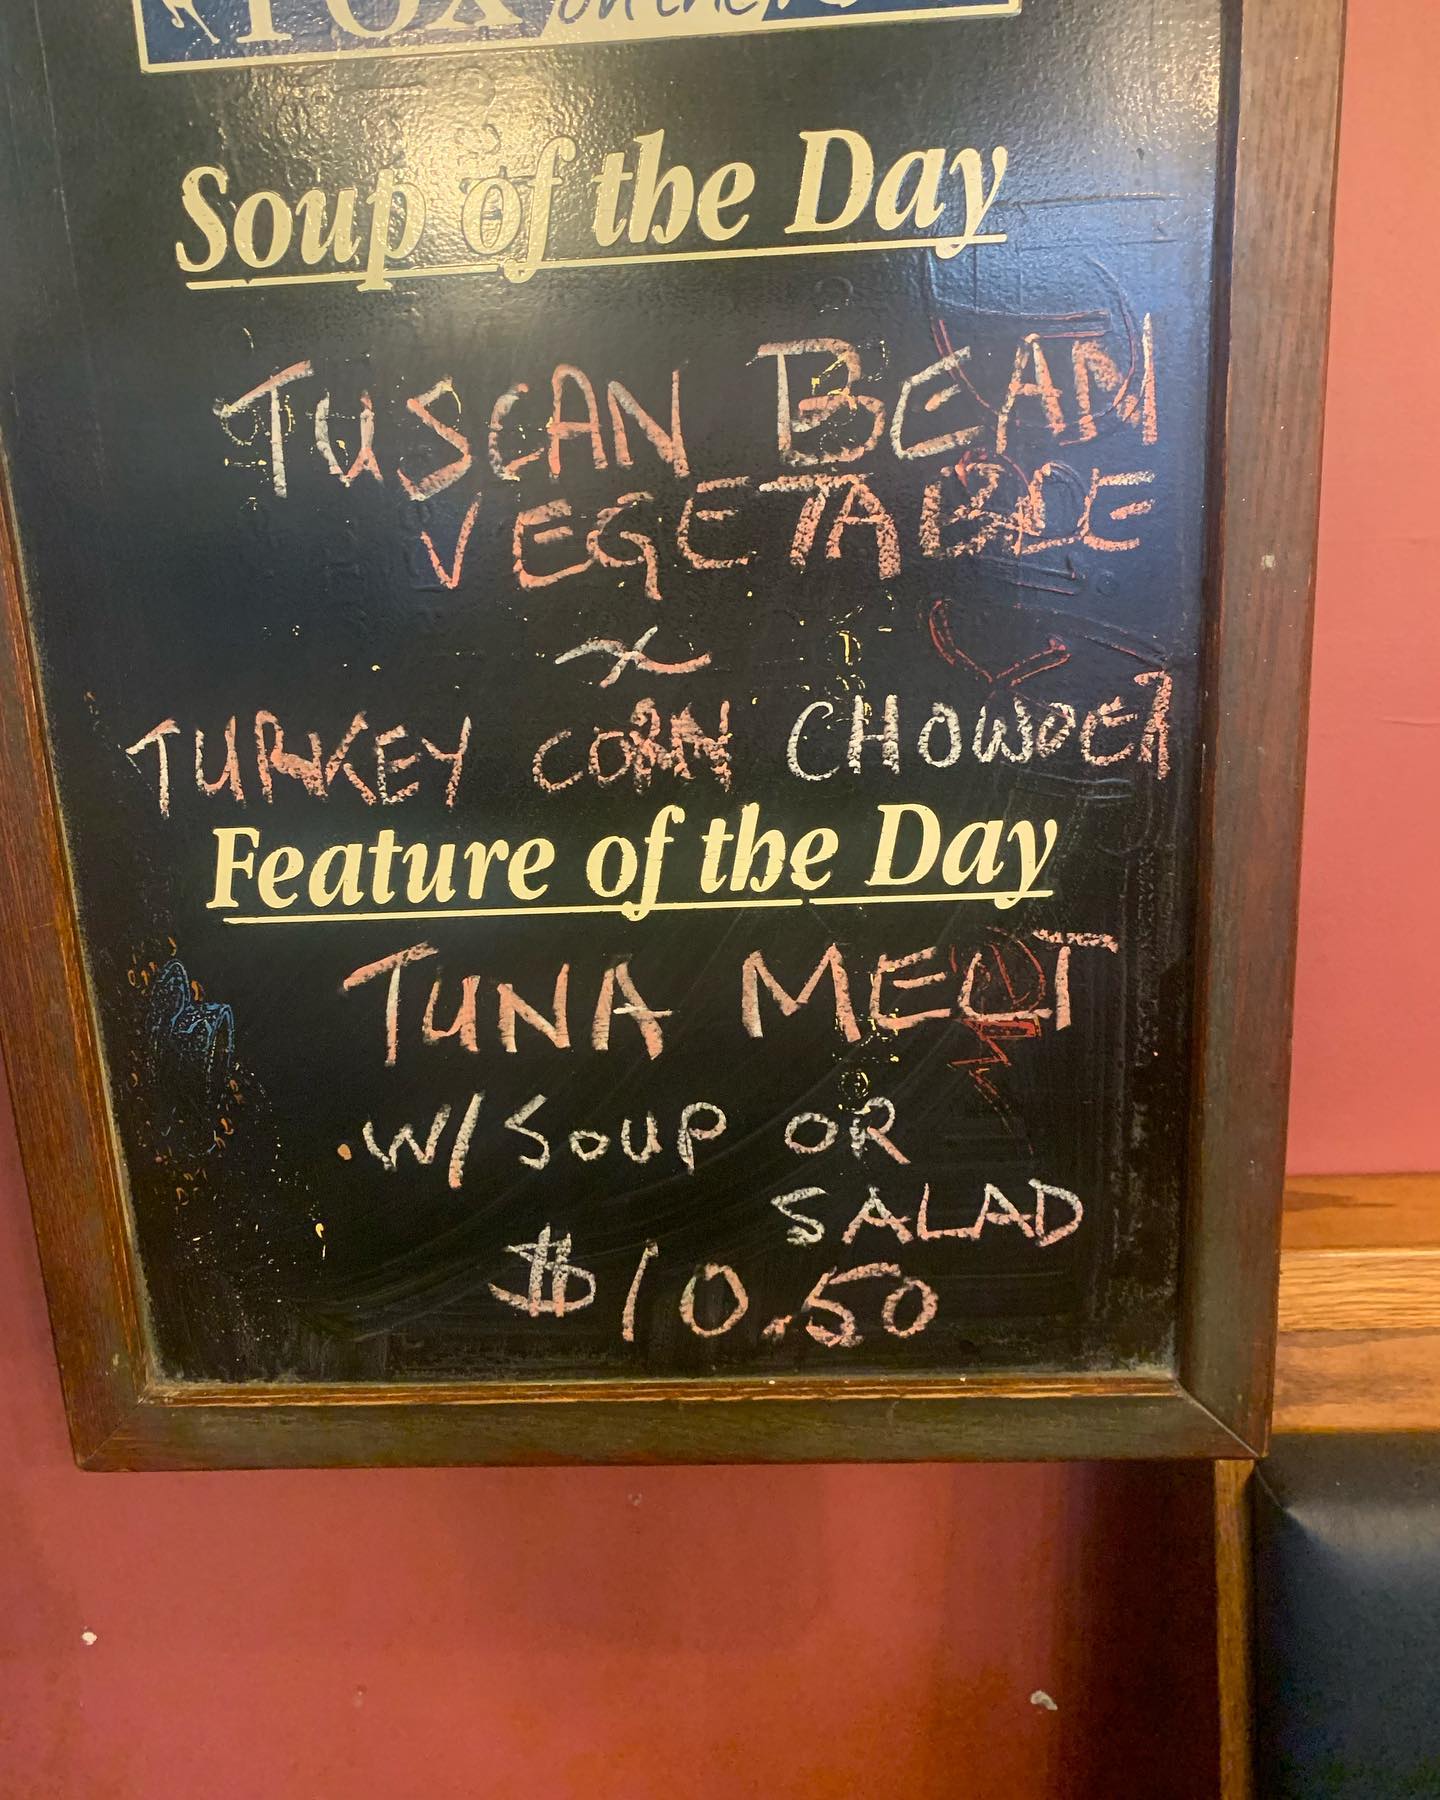 FOX on the
Soup of the Day
TUSCAN BEAN
VEGETABLE
~
TURKEY CORN CHOWDER
Feature of the Day
TUNA MELT
W/ SOUP OR
SALAD
$10.50